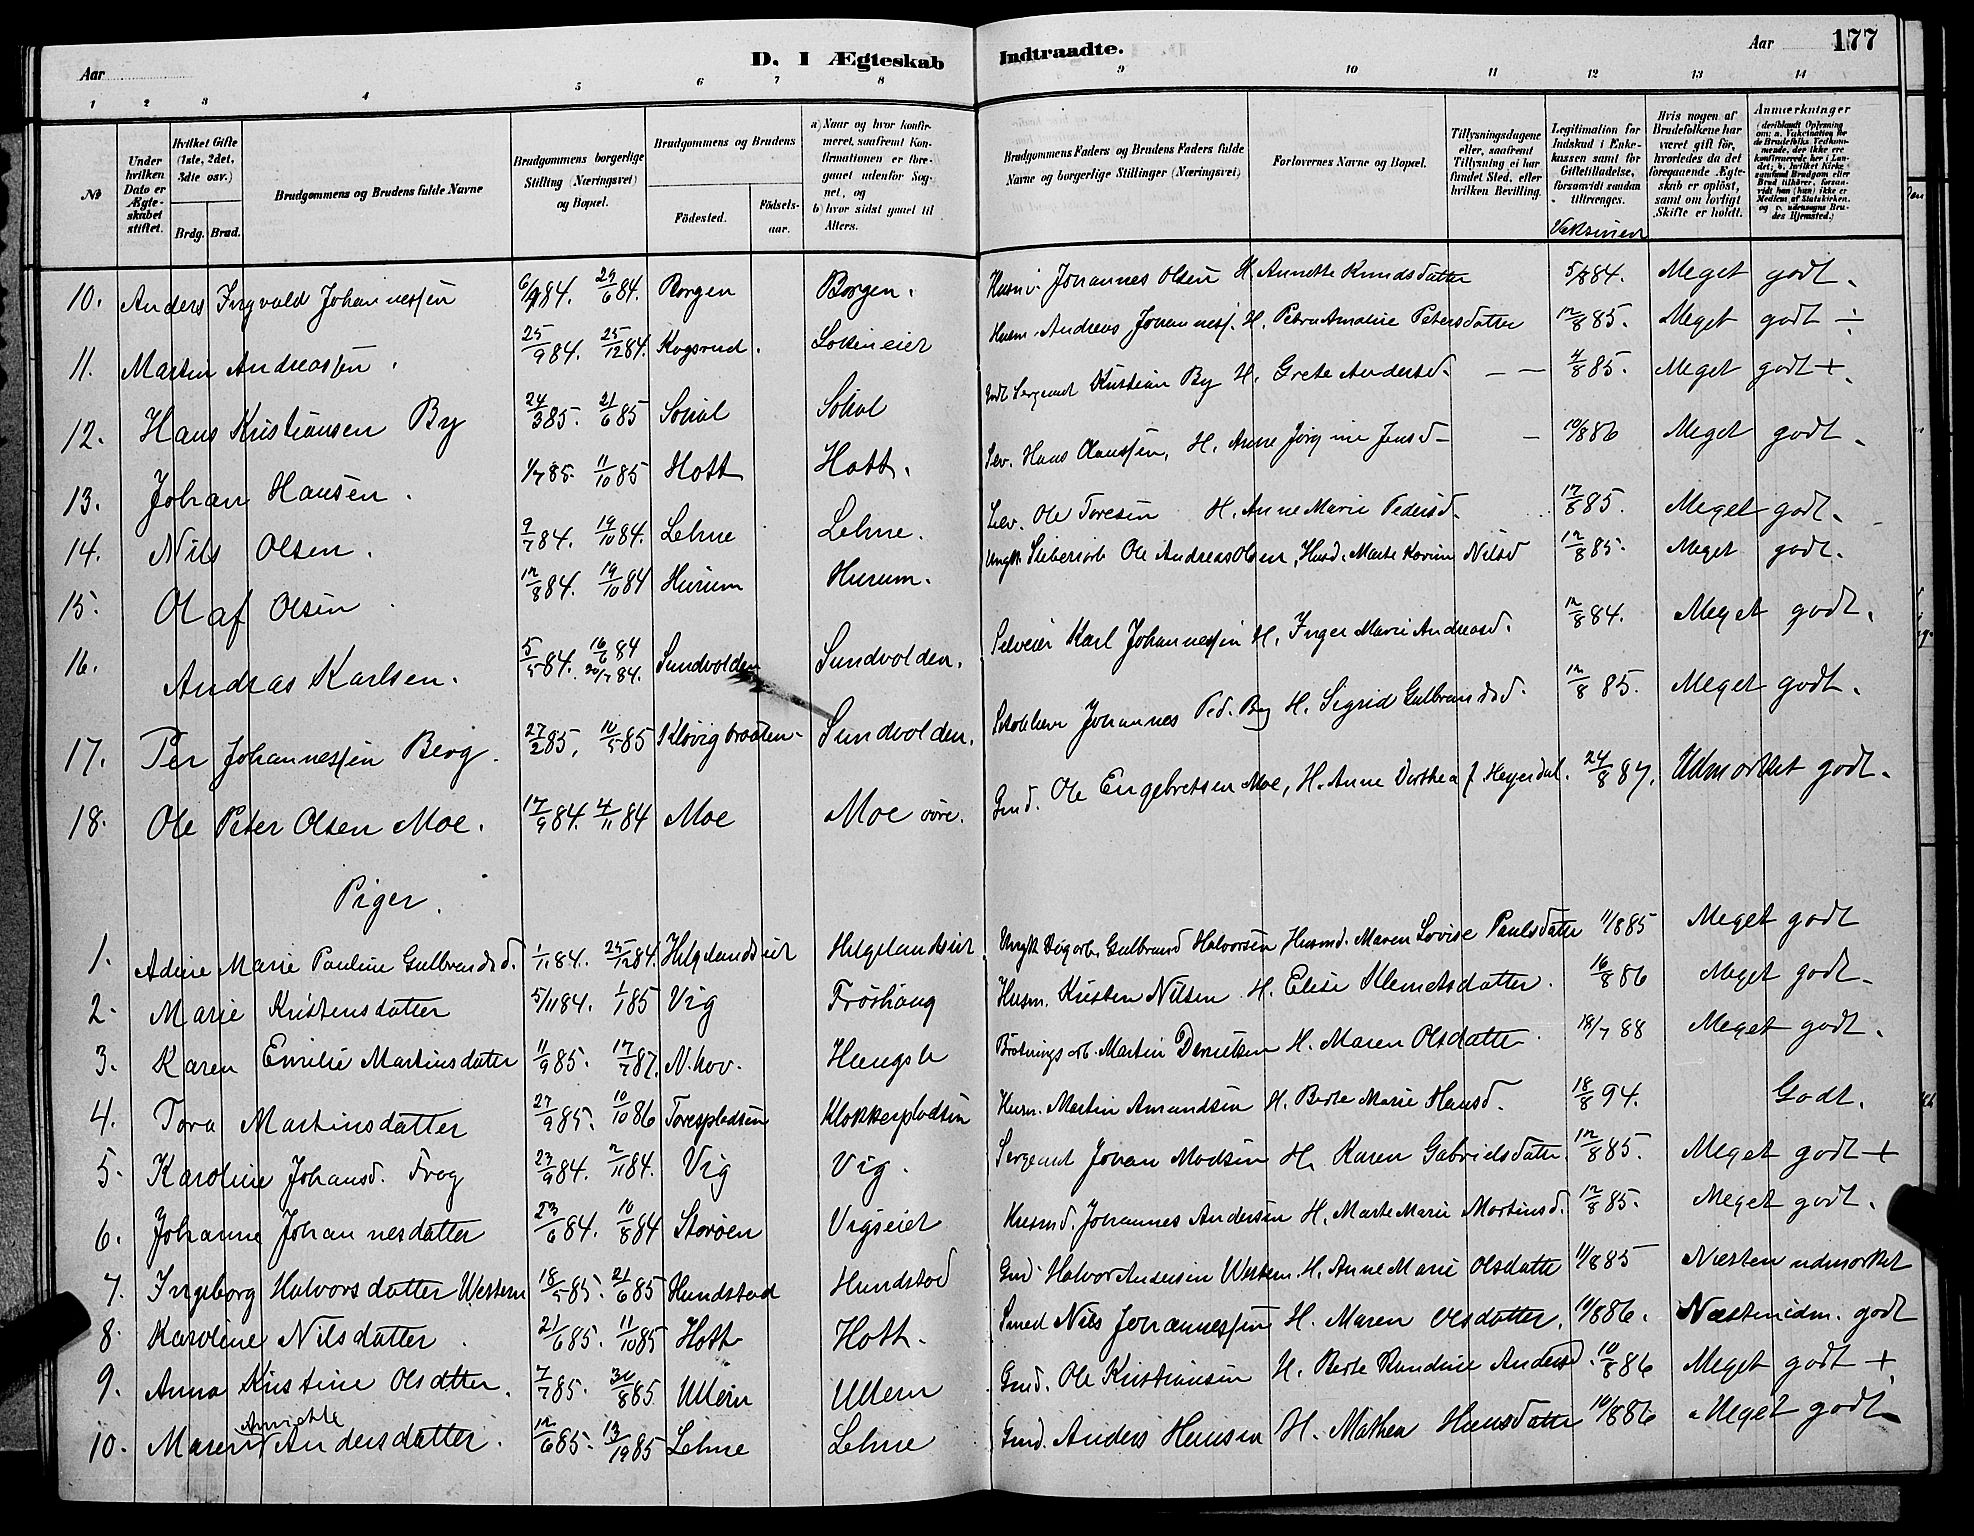 Aar
D. I Ægteskab Indtraadte.
Aar 177
1 2 3 4 5 6 7 8 9 10 11 12 13 14
№
Under hvilken Dato er Ægteskabet stiftet.
Hvilket Gifte (1ste, 2det, 3die osv.)
Brdg. Brud.
Brudgommens og Brudens fulde Navne
Brudgommens borgerlige Stilling (Næringsvei) og Bopæl.
Brudgommens og Brudens
Födested. Födsels-aar.
a) Naar og hvor konfirmeret, saafremt Konfirmationen er foregaaet udenfor Sognet, og
b) hvor sidst gaaet til Alters.
Brudgommens Faders og Brudens Faders fulde Navne og borgerlige Stillinger (Næringsvei)
Forlovernes Navne og Bopæl.
Tillysningsdagene eller, saafremt Tillysning ei har fundet Sted, efter hvilken Bevilling.
Legitimation for Indskud i Enkekassen samt for Giftetilladelse, forsaavidt saadan tiltrænges.
Vaksinien
Hvis nogen af Brudefolkene har været gift för, hvorledes da det foregaaende Ægteskab er oplöst, samt om lovligt Skifte er holdt.
Anmærkninger
10. Anders Ingvald Johannessen 6/9 84. 29/6 84. Borgen Borgen. Husm. Johannes Olsen H. Annette Knudsdatter 5/8 84. Meget godt.
11. Martin Andreassen. 25/9 84. 25/12 84. Kogsrud. Loseneier Husm. Andreas Johanness. H. Petra Amalie Petersdatter 12/8 85. Meget godt ÷
12. Hans Kristiansen By 24/3 85. 21/6 85 Solial Sergeant Kristian By H. Grete Andersd. — — 4/8 85. Meget godt +.
13. Johan Hansen. 1/7 85. 11/10 85 Hott Hott. Lev. Hans Claussen, H. Anne Jørgine Jensd — — 10/8 86 Meget godt.
14. Nils Olsen. 9/7 84. 19/10 84. Lehne Lehne. Lev. Ole Toresen H. Anne Marie Pedersd. 17/8 85. Meget godt.
15. Olaf Olsen. 12/8 84. 19/10 84 Hurum Hurum. Ungk. Ole Andreas Olsen, Husd. Marte Karine Nilsd 12/8 85. Meget godt.
16. Andras Karlsen. 5/5 84. 16/6 84 20/7 84. Sundvolden Sundvolden. Selveier Karl Johannessen H. Inger Marie Andreasd. 12/8 84. Meget godt.
17. Per Johannessen Berg. 27/2 85. 10/5 85 Kløvigbraaten Sundvolden. Johannes Ped. By H. Sigrid Gulbrandsd. 12/8 85. Meget godt.
18. Ole Peter Olsen Moe. 17/9 84. 4/11 84 Moe Moe øvre. Gmd. Ole Engebretsen Moe, H. Anne Dorthea f. Heyerdal. 24/8 87. Udmærket godt.
Piger.
1. Adine Marie Pauline Gulbrandsd. 1/11 84. 25/12 84. Helgelandseiet Helgelandseiet Ungk. Gulbrand Halvorsen Husmd. Maren Lovise Paulsdatter 11/8 85 Meget godt
2. Marie Kristensdatter 5/11 84. 1/1 85 Vig Frøshaug Husm. Kristen Nilsen H. Elise Klemetsdatter. 16/8 86 Meget godt
3. Karen Emilie Martinsdatter 11/9 85. 17/7 87. N. hov. Hengsle Martin Danielsen H. Maren Olsdatter. 18/7 88 Meget godt.
4. Tora Martinsdatter 27/9 85. 10/10 86 Toresplodsen Klokkerplodsen Husm. Martin Amundsen H. Berte Marie Hansd. 18/8 94. Godt.
5. Karoline Johansd. Frog 23/9 84. 2/11 84. Vig Vig. Sergeant Johan Madsen H. Karen Gabrielsdatter 12/8 85. Meget godt +
6. Johanne Johannesdatter 23/6 84. 10/8 84 Storøen Vigseiet Husmd. Johannes Andersen H. Marte Marie Martinsd. 12/8 85. Meget godt.
7. Ingeborg Halvorsdatter Western 18/5 85. 21/6 85 Hundstad Hundstad Gmd. Halvor Andersen Western. H. Anne Marie Olsdatter 11/8 85 Næsten udmærket
8. Karoline Nilsdatter. 21/6 85. 11/10 85 Hott Hott. Smed Nils Johannessen H. Maren Olsdatter. 10/8 86. Næsten udm. godt
9. Anna Kristine Olsdtter. 7/7 85. 30/8 85 Ullern Ullern Gmd. Ole Kristiansen H. Berte Randine Andersd. 10/8 86 Meget godt +
10. Maren Annette Andersdatter. 12/6 85. 13/19 85 Lehne Lehne Gmd. Anders Hansen H. Mathea Hansdatter 10/8 86 Meget godt